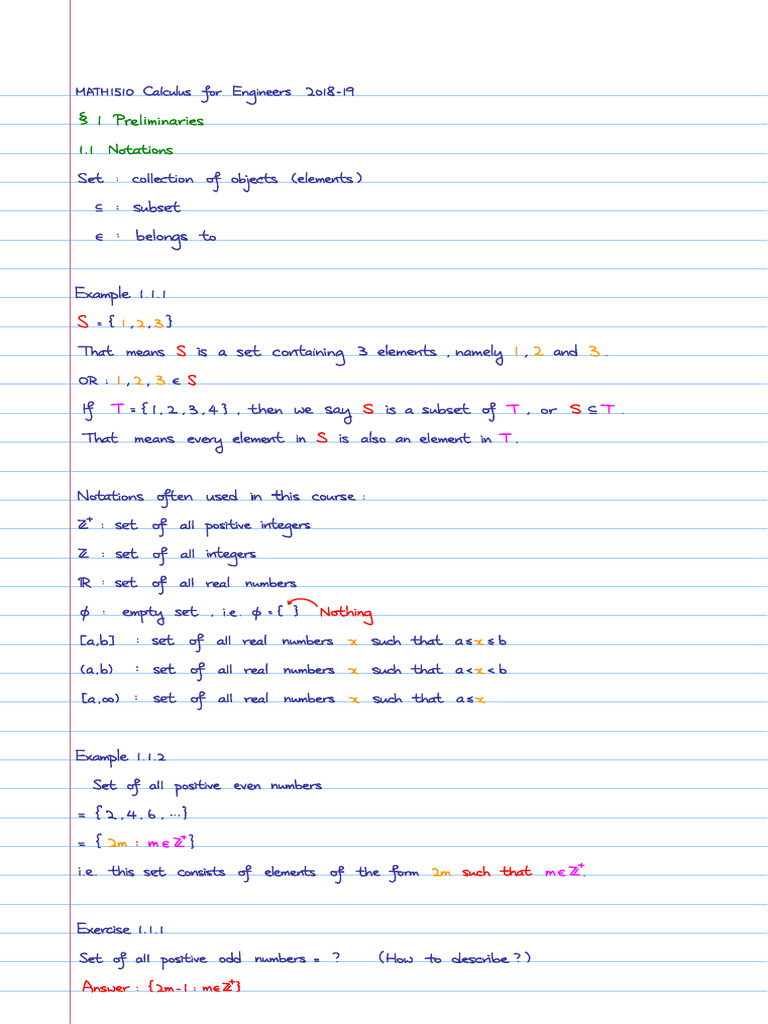 MATH1510 Calculus for Engineers 2018-19
§ 1 Preliminaries
1.1 Notations
Set : collection of objects (elements)
⊆ : subset
∈ : belongs to
Example 1.1.1
S = { 1, 2, 3 }
That means S is a set containing 3 elements, namely 1, 2 and 3.
OR : 1, 2, 3 ∈ S
If T = {1, 2, 3, 4}, then we say S is a subset of T, or S ⊆ T.
That means every element in S is also an element in T.
Notations often used in this course :
ℤ⁺ : set of all positive integers
ℤ : set of all integers
ℝ : set of all real numbers
φ : empty set, i.e. φ = { } Nothing
[a,b] : set of all real numbers x such that a≤x≤b
(a,b) : set of all real numbers x such that a<x<b
[a,∞) : set of all real numbers x such that a≤x
Example 1.1.2
Set of all positive even numbers
= {2, 4, 6, ...}
= { 2m : m∈ℤ⁺}
i.e. this set consists of elements of the form 2m such that m∈ℤ⁺.
Exercise 1.1.1
Set of all positive odd numbers = ? (How to describe?)
Answer : {2m-1 : m∈ℤ⁺}